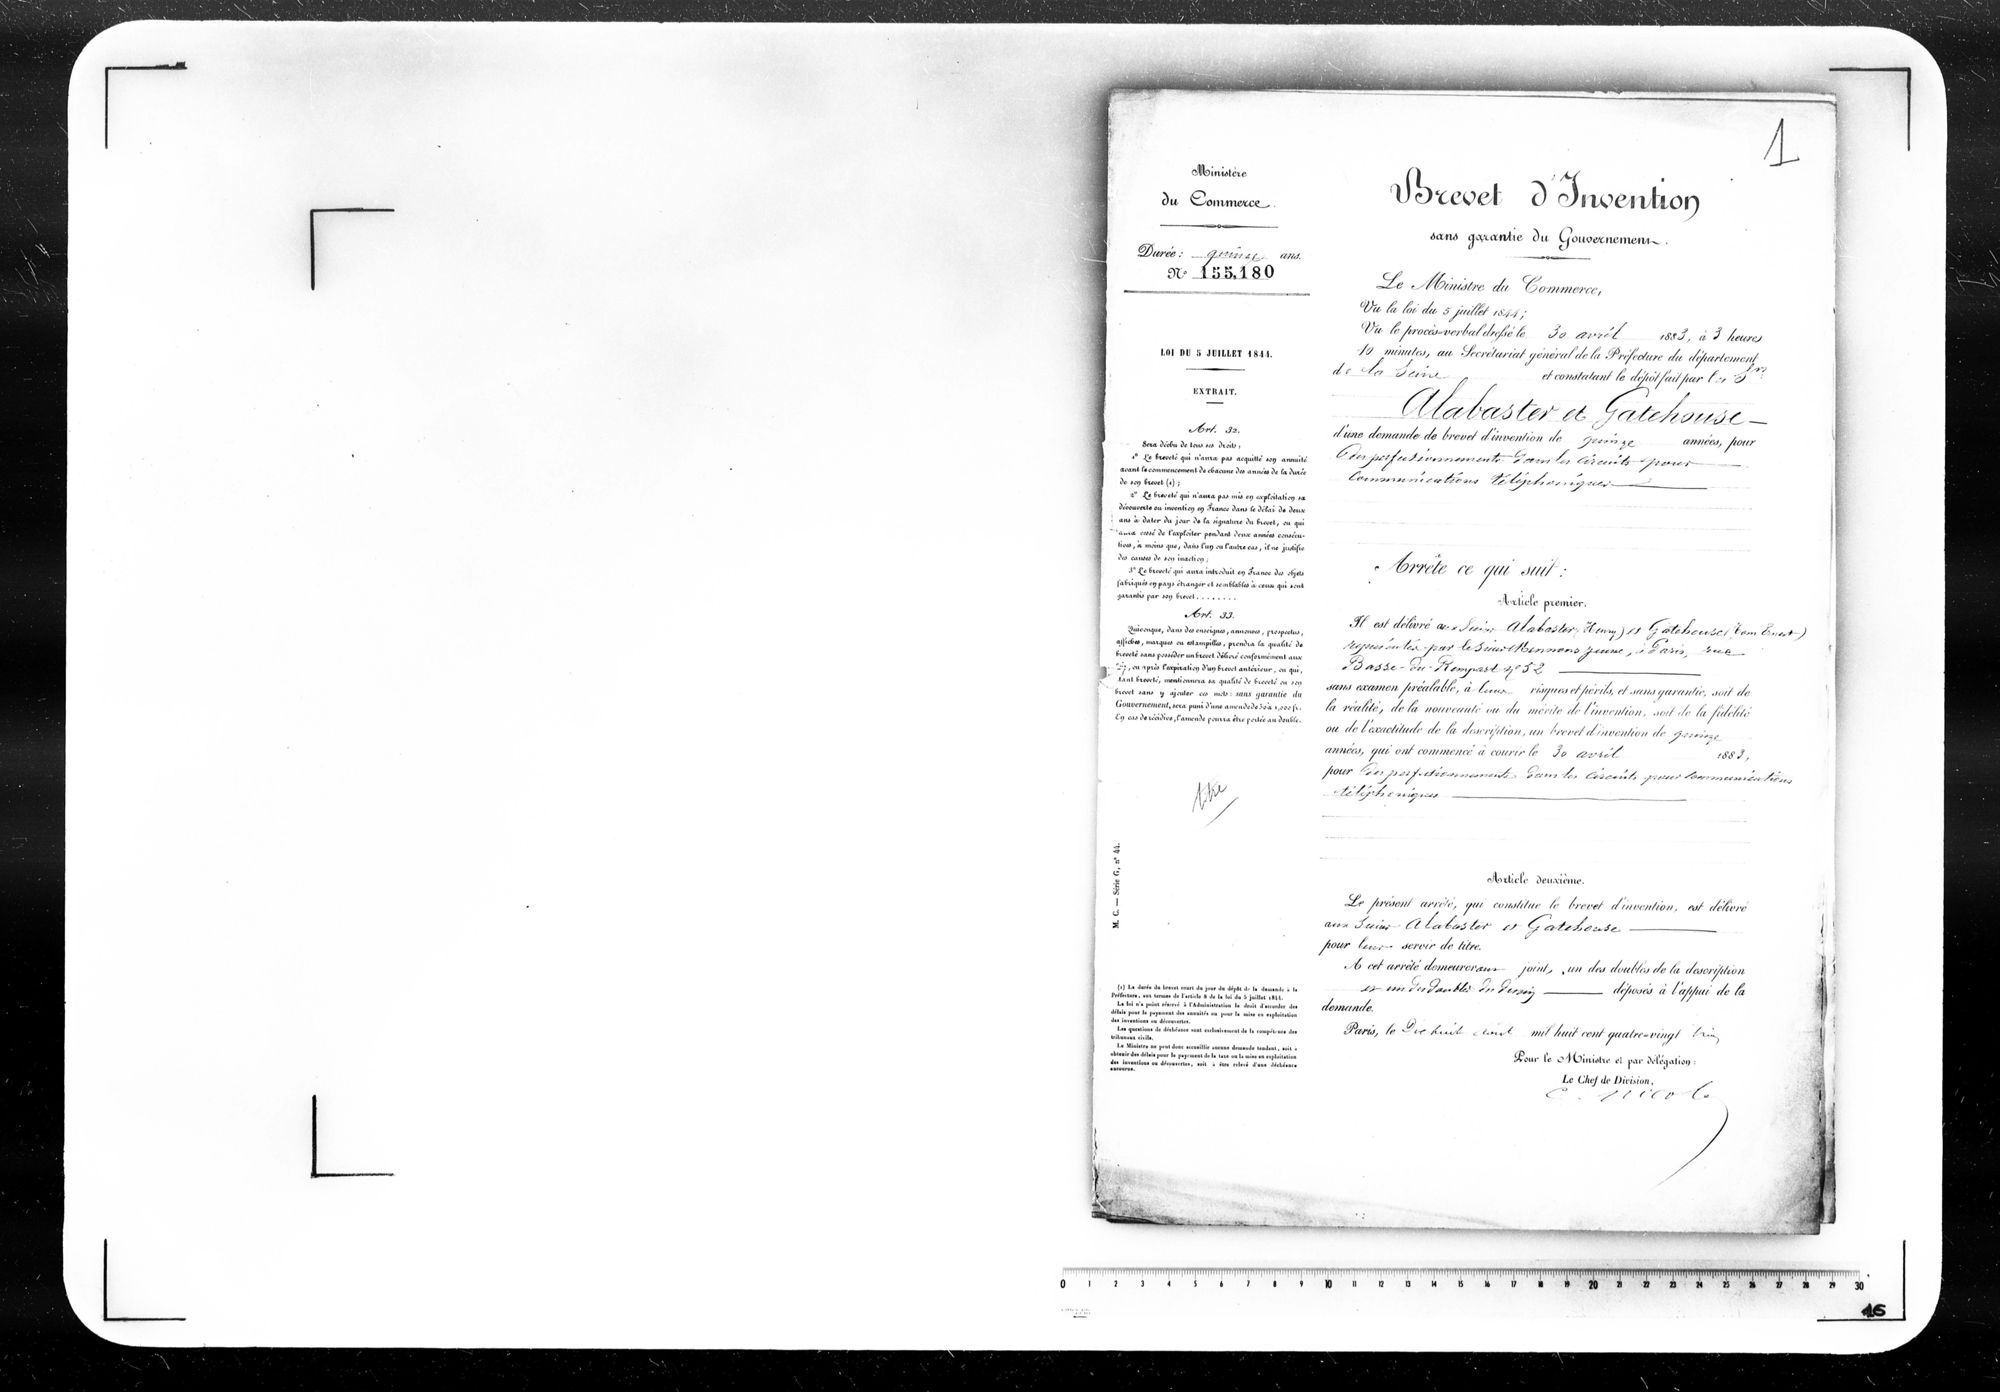 1
Ministère
du Commerce.
Durée : quinze ans.
N° 155,180
LOI DU 5 JUILLET 1844.
EXTRAIT.
Art. 32.
Sera déchu de tous ses droits :
1° Le breveté qui n'aura pas acquitté son annuité
avant le commencement de chacune des années de la durée
de son brevet (1) ;
2° Le breveté qui n'aura pas mis en exploitation sa
découverte ou invention en France dans le délai de deux
ans à dater du jour de la signature du brevet, ou qui
aura cessé de l'exploiter pendant deux années consécu-
tives, à moins que, dans l'un ou l'autre cas, il ne justifie
des causes de son inaction ;
3° Le breveté qui aura introduit en France des objets
fabriqués en pays étranger et semblables à ceux qui sont
garantis par son brevet........
Art. 33.
Quiconque, dans des enseignes, annonces, prospectus,
affiches, marques ou estampilles, prendra la qualité de
breveté sans posséder un brevet délivré conformément aux
ou après l'expiration d'un brevet antérieur, ou qui,
étant breveté, mentionnera sa qualité de breveté ou son
brevet sans y ajouter ces mots : sans garantie du
Gouvernement, sera puni d'une amende de 50 à 1,000 fr.
En cas de récidive, l'amende pourra être portée au double.
M. C. — Série G, n° 44.
(1) La durée du brevet court du jour du dépôt de la demande à la
Préfecture, aux termes de l'article 8 de la loi du 5 juillet 1844.
La loi n'a point réservé à l'Administration le droit d'accorder des
délais pour le payement des annuités ou pour la mise en exploitation
des inventions ou découvertes.
Les questions de déchéance sont exclusivement de la compétence des
tribunaux civils.
Le Ministre ne peut donc accueillir aucune demande tendant, soit à
obtenir des délais pour le payement de la taxe ou la mise en exploitation
des inventions ou découvertes, soit à être relevé d'une déchéance
encourue.
Brevet d'Invention
sans garantie du Gouvernement.
Le Ministre du Commerce,
Vu la loi du 5 juillet 1844 ;
Vu le procès-verbal dressé le 30 avril 1883, à 3 heures
10 minutes, au Secrétariat général de la Préfecture du département
de la Seine et constatant le dépôt fait par les Srs
Alabaster et Gatehouse
d'une demande de brevet d'invention de quinze années, pour
des perfectionnements dans les circuits pour
communications téléphoniques
Arrête ce qui suit :
Article premier.
Il est délivré aux Sieurs Alabaster (Henry) et Gatehouse (Tom Ernest)
représentés par le Sieur Mennons jeune, à Paris, rue
Basse-du-Rempart n° 52
sans examen préalable, à leurs risques et périls, et sans garantie, soit de
la réalité, de la nouveauté ou du mérite de l'invention, soit de la fidélité
ou de l'exactitude de la description, un brevet d'invention de quinze
années, qui ont commencé à courir le 30 avril 1883,
pour des perfectionnements dans les circuits pour communications
téléphoniques
Article deuxième.
Le présent arrêté, qui constitue le brevet d'invention, est délivré
aux Sieurs Alabaster et Gatehouse
pour leur servir de titre.
A cet arrêté demeureront joints un des doubles de la description
et un des doubles du dessin déposés à l'appui de la
demande.
Paris, le Dix huit août mil huit cent quatre-vingt trois
Pour le Ministre et par délégation :
Le Chef de Division,
0 1 2 3 4 5 6 7 8 9 10 11 12 13 14 15 16 17 18 19 20 21 22 23 24 25 26 27 28 29 30
16